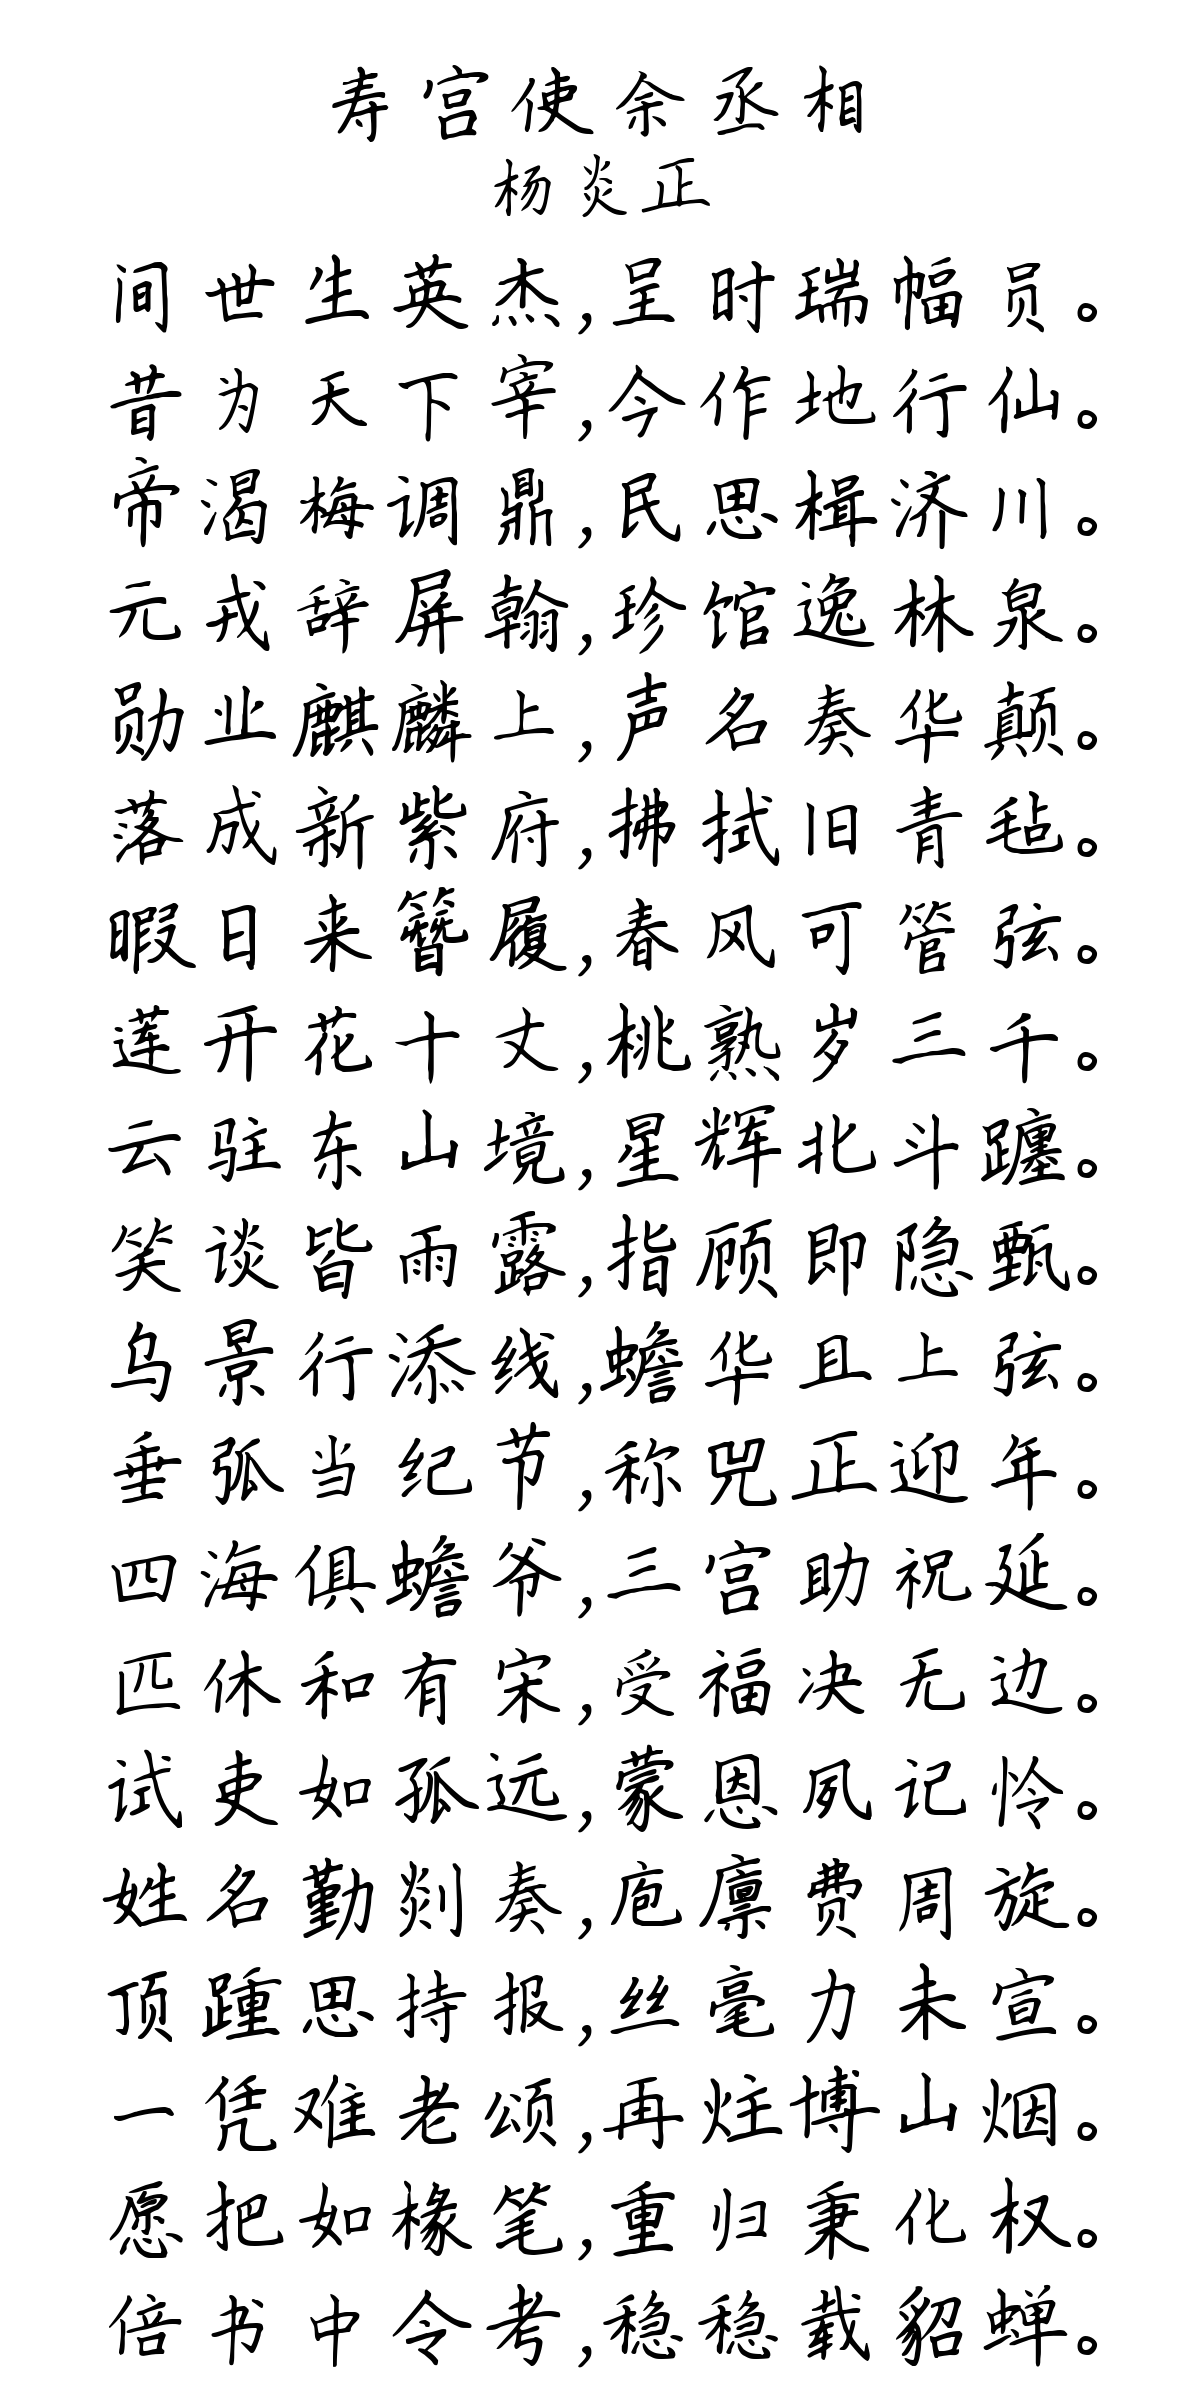 寿宫使余丞相
杨炎正
间世生英杰,呈时瑞幅员。
昔为天下宰,今作地行仙。
帝渴梅调鼎,民思楫济川。
元戎辞屏翰,珍馆逸林泉。
勋业麒麟上,声名奏华颠。
落成新紫府,拂拭旧青毡。
暇日来簪履,春风可管弦。
莲开花十丈,桃熟岁三千。
云驻东山境,星辉北斗躔。
笑谈皆雨露,指顾即隐甄。
乌景行添线,蟾华且上弦。
垂弧当纪节,称兕正迎年。
四海俱蟾爷,三宫助祝延。
匹休和有宋,受福决无边。
试吏如孤远,蒙恩夙记怜。
姓名勤剡奏,庖廪费周旋。
顶踵思持报,丝毫力未宣。
一凭难老颂,再炷博山烟。
愿把如椽笔,重归秉化权。
倍书中令考,稳稳载貂蝉。